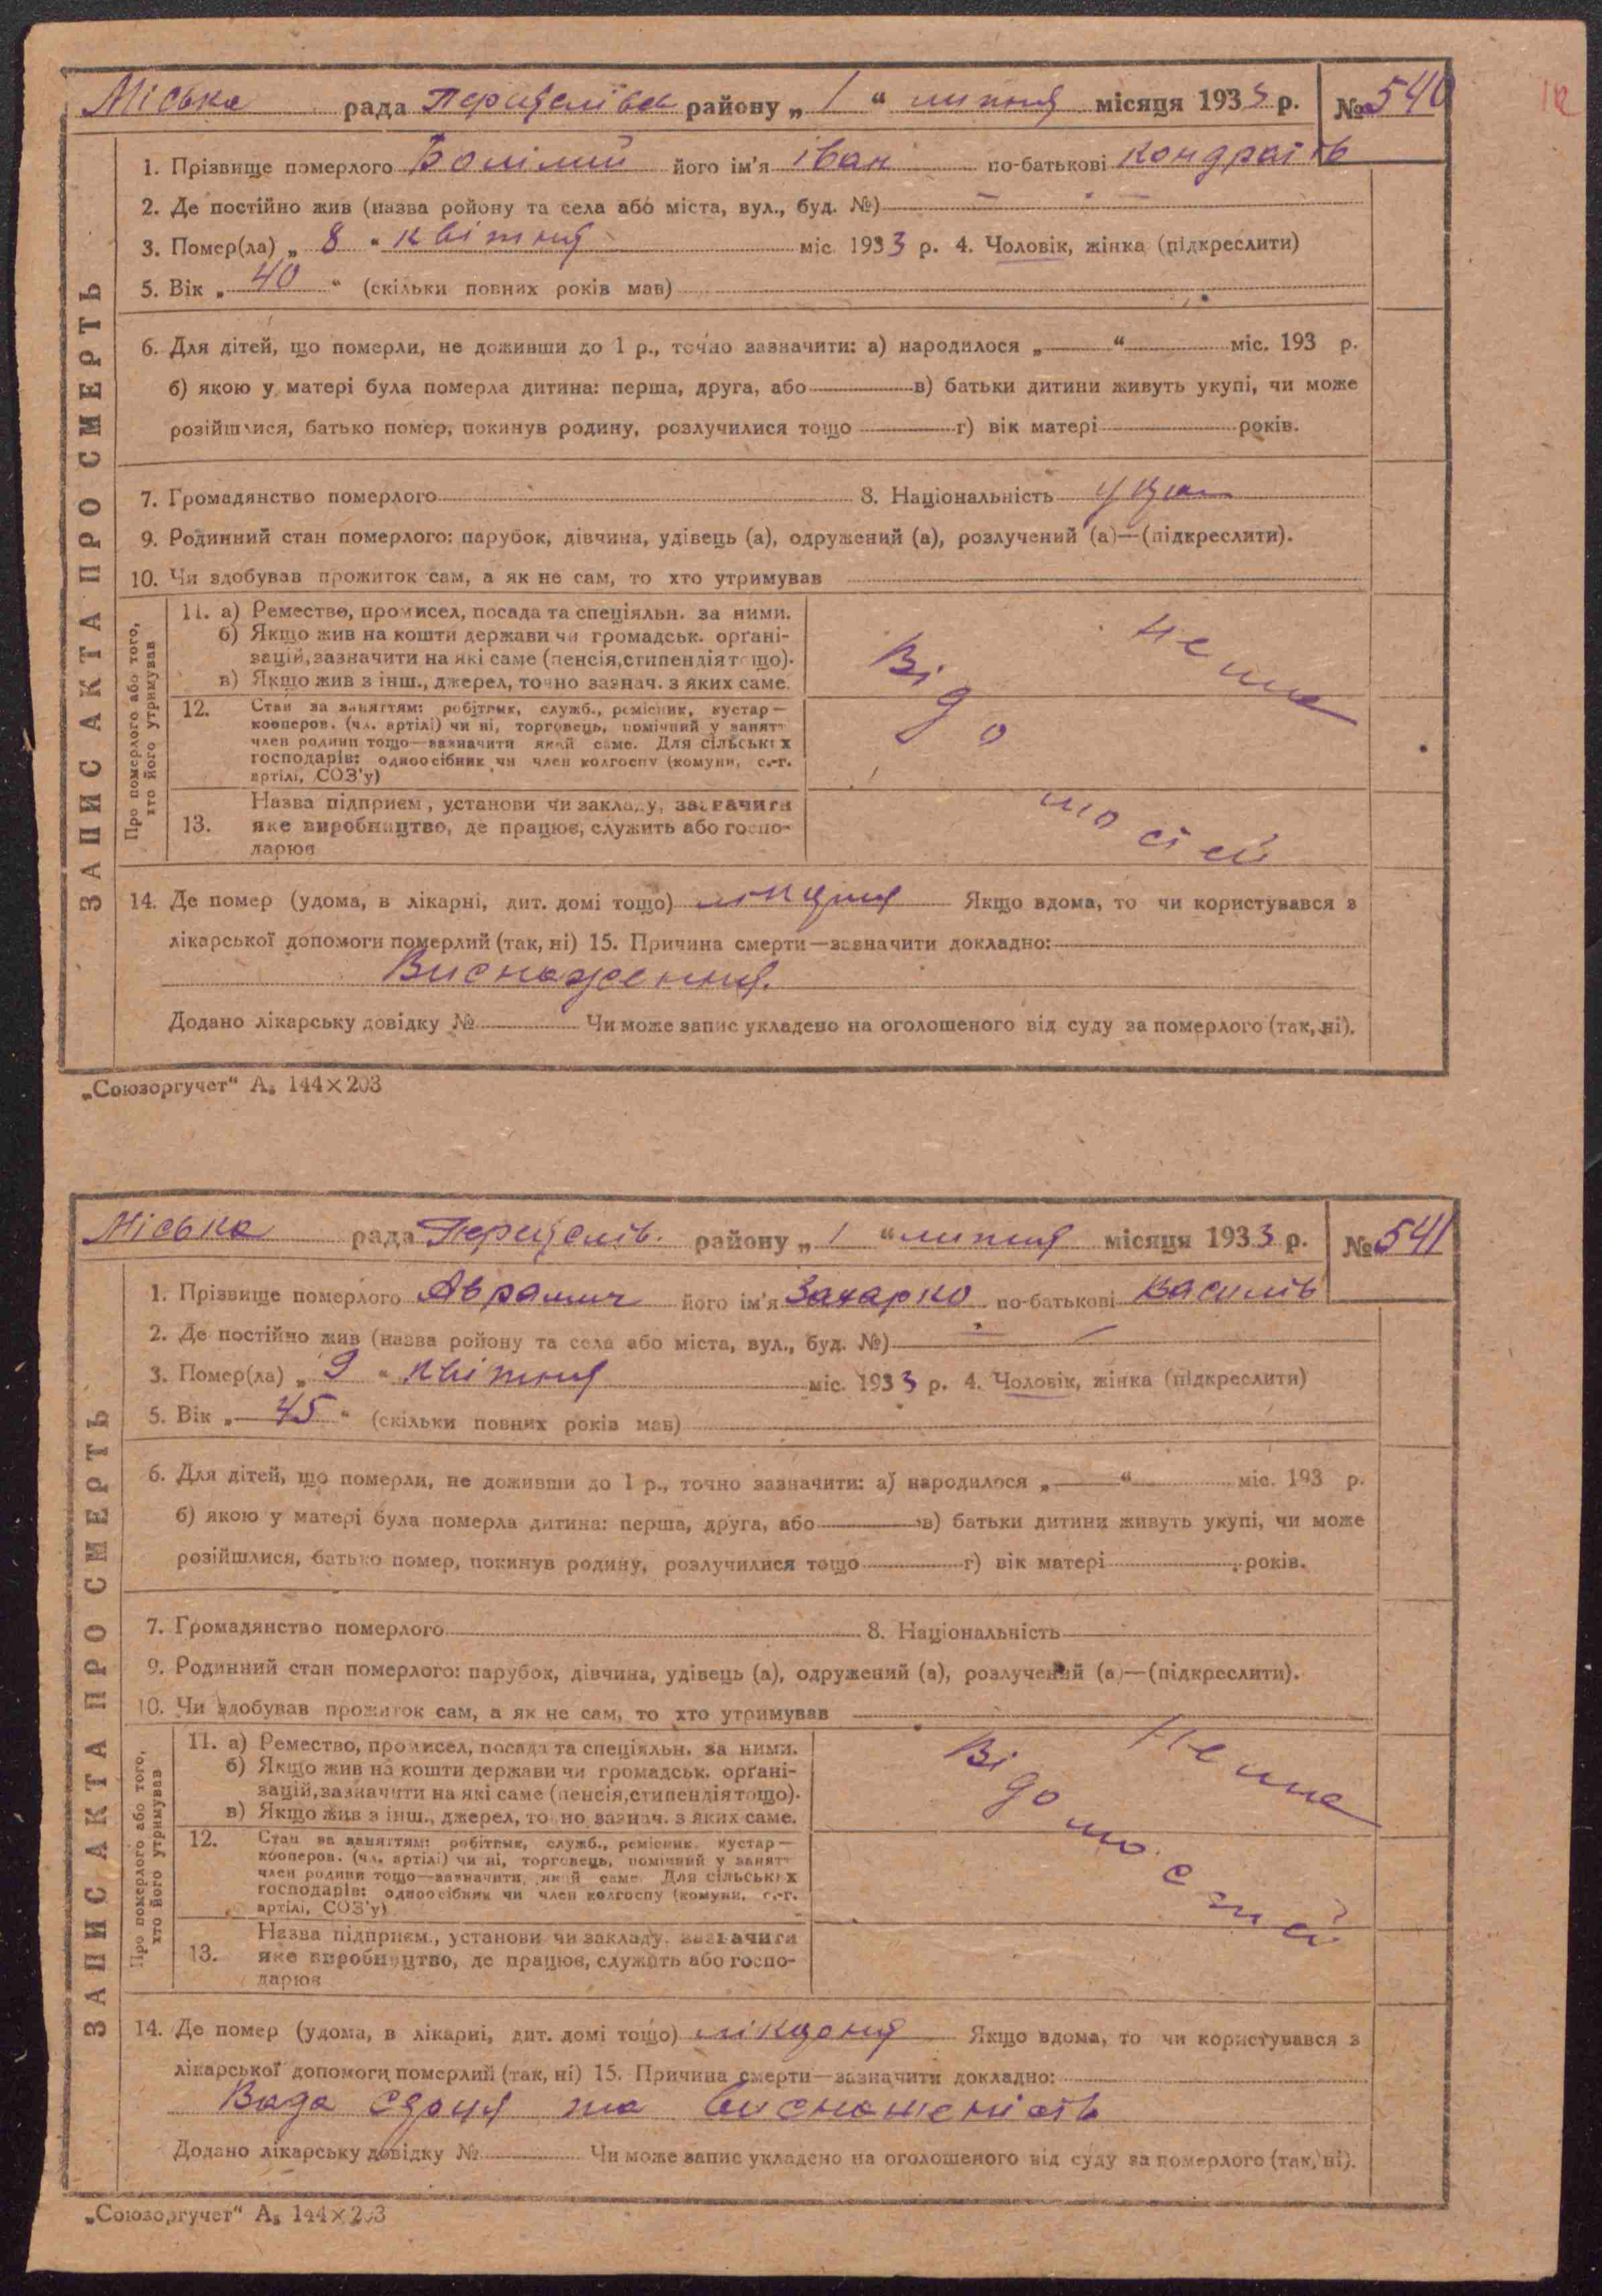 Міська рада Переяслівск району „ 1 “ липня місяця 1933 р. № 540
1. Прізвище померлого його ім'я іван по-батькові Кондратів
2. Де постійно жив (назва ройону та села або міста, вул., буд. №) — —
3. Помер(ла) „ 8 “ квітня міс. 1933 р. 4. Чоловік, жінка (підкреслити)
5. Вік „ 40 “ (скільки повних років мав)
6. Для дітей, що померли, не доживши до 1 р., точно зазначити: а) народилося „ “ міс. 193 р.
б) якою у матері була померла дитина: перша, друга, або в) батьки дитини живуть укупі, чи може
розійшлися, батько помер, покинув родину, розлучилися тощо г) вік матері років.
7. Громадянство померлого 8. Національність укра
9. Родинний стан померлого: парубок, дівчина, удівець (а), одружений (а), розлучений (а)—(підкреслити).
10. Чи здобував прожиток сам, а як не сам, то хто утримував
ЗАПИС АКТА ПРО СМЕРТЬ
Про померлого або того,
хто його утримував
11. а) Ремество, промисел, посада та спеціяльн. за ними.
б) Якщо жив на кошти держави чи громадськ. орґані-
зацій, зазначити на які саме (пенсія, стипендія тощо).
в) Якщо жив з інш., джерел, точно зазнач. з яких саме.
12. Стан за заняттям: робітник, служб., ремісник, кустар—
кооперов. (чл. артілі) чи ні, торговець, помічний у занятт
член родини тощо—зазначити який саме. Для сільських
господарів: одноосібник чи член колгоспу (комуни, с.-г.
артілі, СОЗ'у)
13. Назва підприєм., установи чи закладу, зазначити
яке виробництво, де працює, служить або госпо-
дарює
Відомостей немає
14. Де помер (удома, в лікарні, дит. домі тощо) лікарня Якщо вдома, то чи користувався з
лікарської допомоги померлий (так, ні) 15. Причина смерти—зазначити докладно:
Виснаження.
Додано лікарську довідку № Чи може запис укладено на оголошеного від суду за померлого (так, ні).
„Союзоргучет“ А₅ 144×203
Міська рада Переяслів. району „ 1 “ липня місяця 1933 р. № 541
1. Прізвище померлого Аврамич його ім'я Захарко по-батькові Василів
2. Де постійно жив (назва ройону та села або міста, вул., буд. №) — —
3. Помер(ла) „ 9 “ квітня міс. 1933 р. 4. Чоловік, жінка (підкреслити)
5. Вік „ 45 “ (скільки повних років мав)
6. Для дітей, що померли, не доживши до 1 р., точно зазначити: а) народилося „ “ міс. 193 р.
б) якою у матері була померла дитина: перша, друга, або в) батьки дитини живуть укупі, чи може
розійшлися, батько помер, покинув родину, розлучилися тощо г) вік матері років.
7. Громадянство померлого 8. Національність
9. Родинний стан померлого: парубок, дівчина, удівець (а), одружений (а), розлучений (а)—(підкреслити).
10. Чи здобував прожиток сам, а як не сам, то хто утримував
ЗАПИС АКТА ПРО СМЕРТЬ
Про померлого або того,
хто його утримував
11. а) Ремество, промисел, посада та спеціяльн. за ними.
б) Якщо жив на кошти держави чи громадськ. орґані-
зацій, зазначити на які саме (пенсія, стипендія тощо).
в) Якщо жив з інш., джерел, точно зазнач. з яких саме.
12. Стан за заняттям: робітник, служб., ремісник, кустар—
кооперов. (чл. артілі) чи ні, торговець, помічний у занятт
член родини тощо—зазначити який саме. Для сільських
господарів: одноосібник чи член колгоспу (комуни, с.-г.
артілі, СОЗ'у)
13. Назва підприєм., установи чи закладу, зазначити
яке виробництво, де працює, служить або госпо-
дарює
Відомостей немає
14. Де помер (удома, в лікарні, дит. домі тощо) лікарня Якщо вдома, то чи користувався з
лікарської допомоги померлий (так, ні) 15. Причина смерти—зазначити докладно:
Вада серця та виснаженість
Додано лікарську довідку № Чи може запис укладено на оголошеного від суду за померлого (так, ні).
„Союзоргучет“ А₅ 144×203